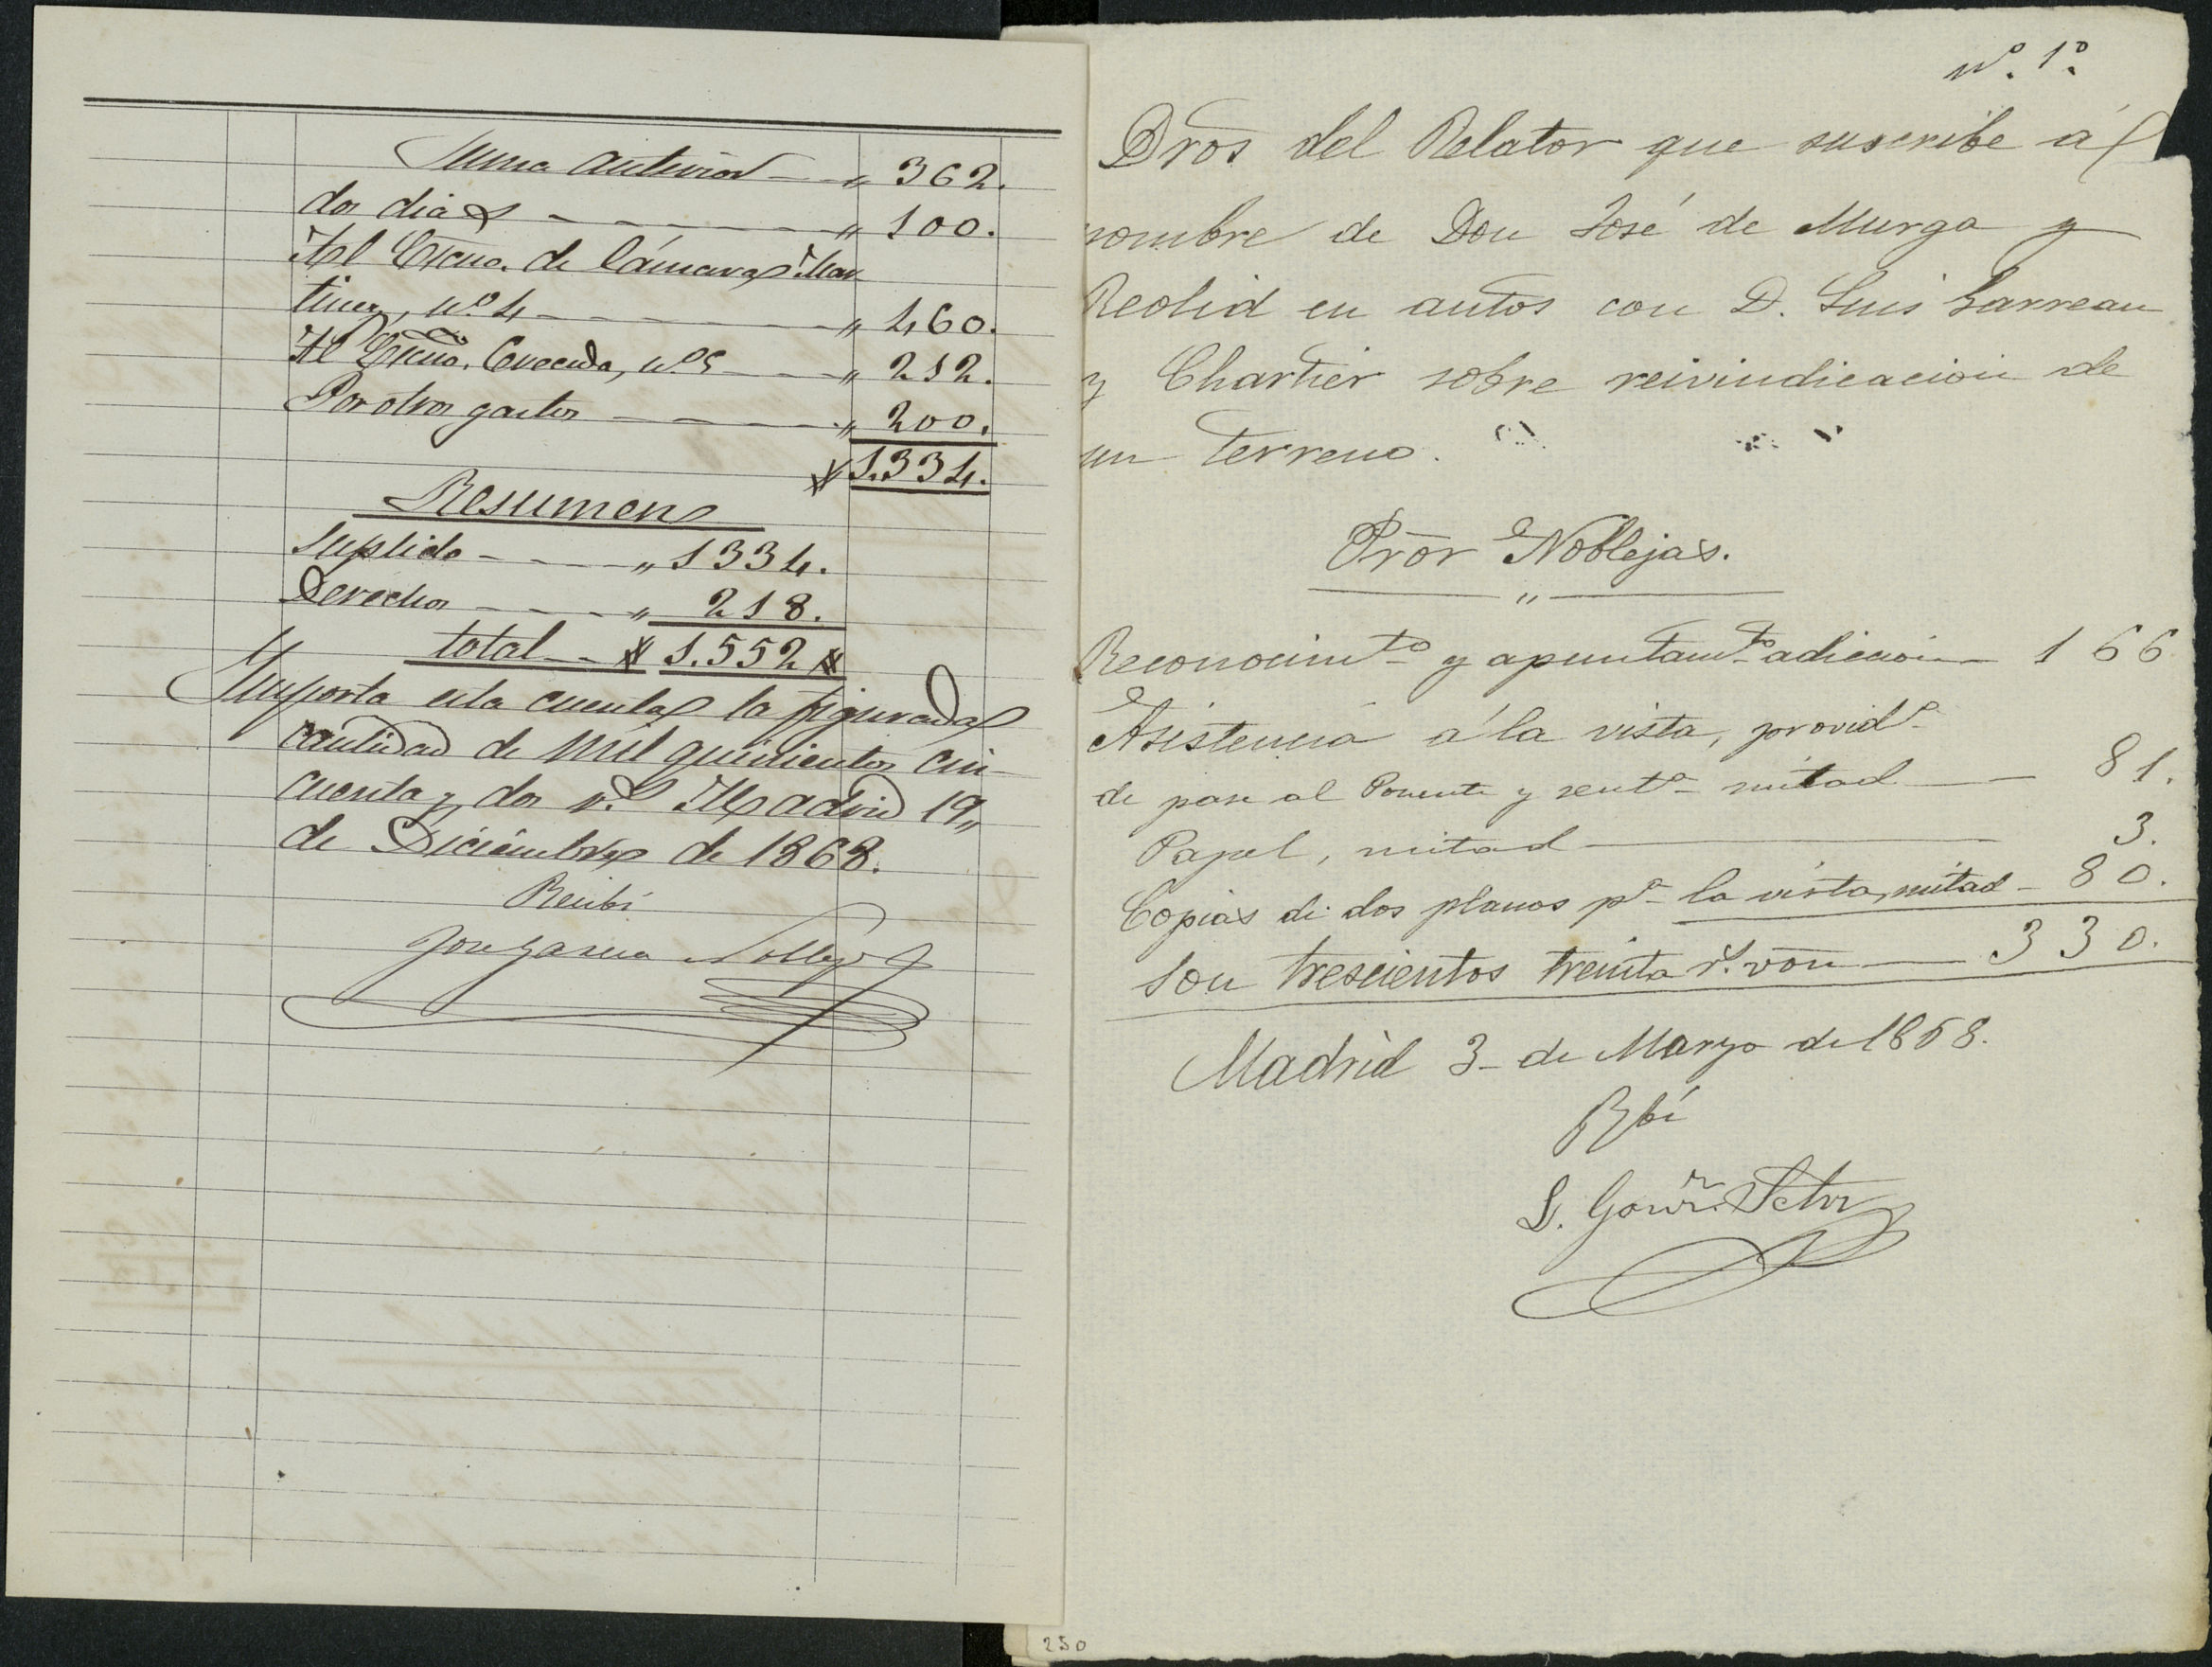 Suma anterior — " 362.
dos dias — " 100.
Al Escno. de Cámara Mar
tinez, nº 4 — " 460.
Al Escno. Cereceda, nº 5 — " 212.
Por otros gastos — " 200.
1.334.
Resumen
Suplido — " 1334.
Derechos — " 218.
total — 1.552
Importa esta cuenta la figurada
cantidad de mil quinientos cin-
cuenta y dos rs. Madrid 19,,
de Diciembre de 1868.
Recibí
Jose Garcia Noblejas
nº. 1º.
Dros del Relator que suscribe á
nombre de Don José de Murga y
Reolid en autos con D. Luis Garreau
y Chartier sobre reivindicacion de
un terreno.
Pror Noblejas.
"
Reconocimto y apuntamto adicion — 166
Asistencia á la vista, provida
de pase al Ponente y senta mitad — 81.
Papel, mitad — 3.
Copias de dos planos pa la vista, mitad — 80.
Son trescientos treinta rs. von — 330.
Madrid 3 de Marzo de 1868.
Rbí
250